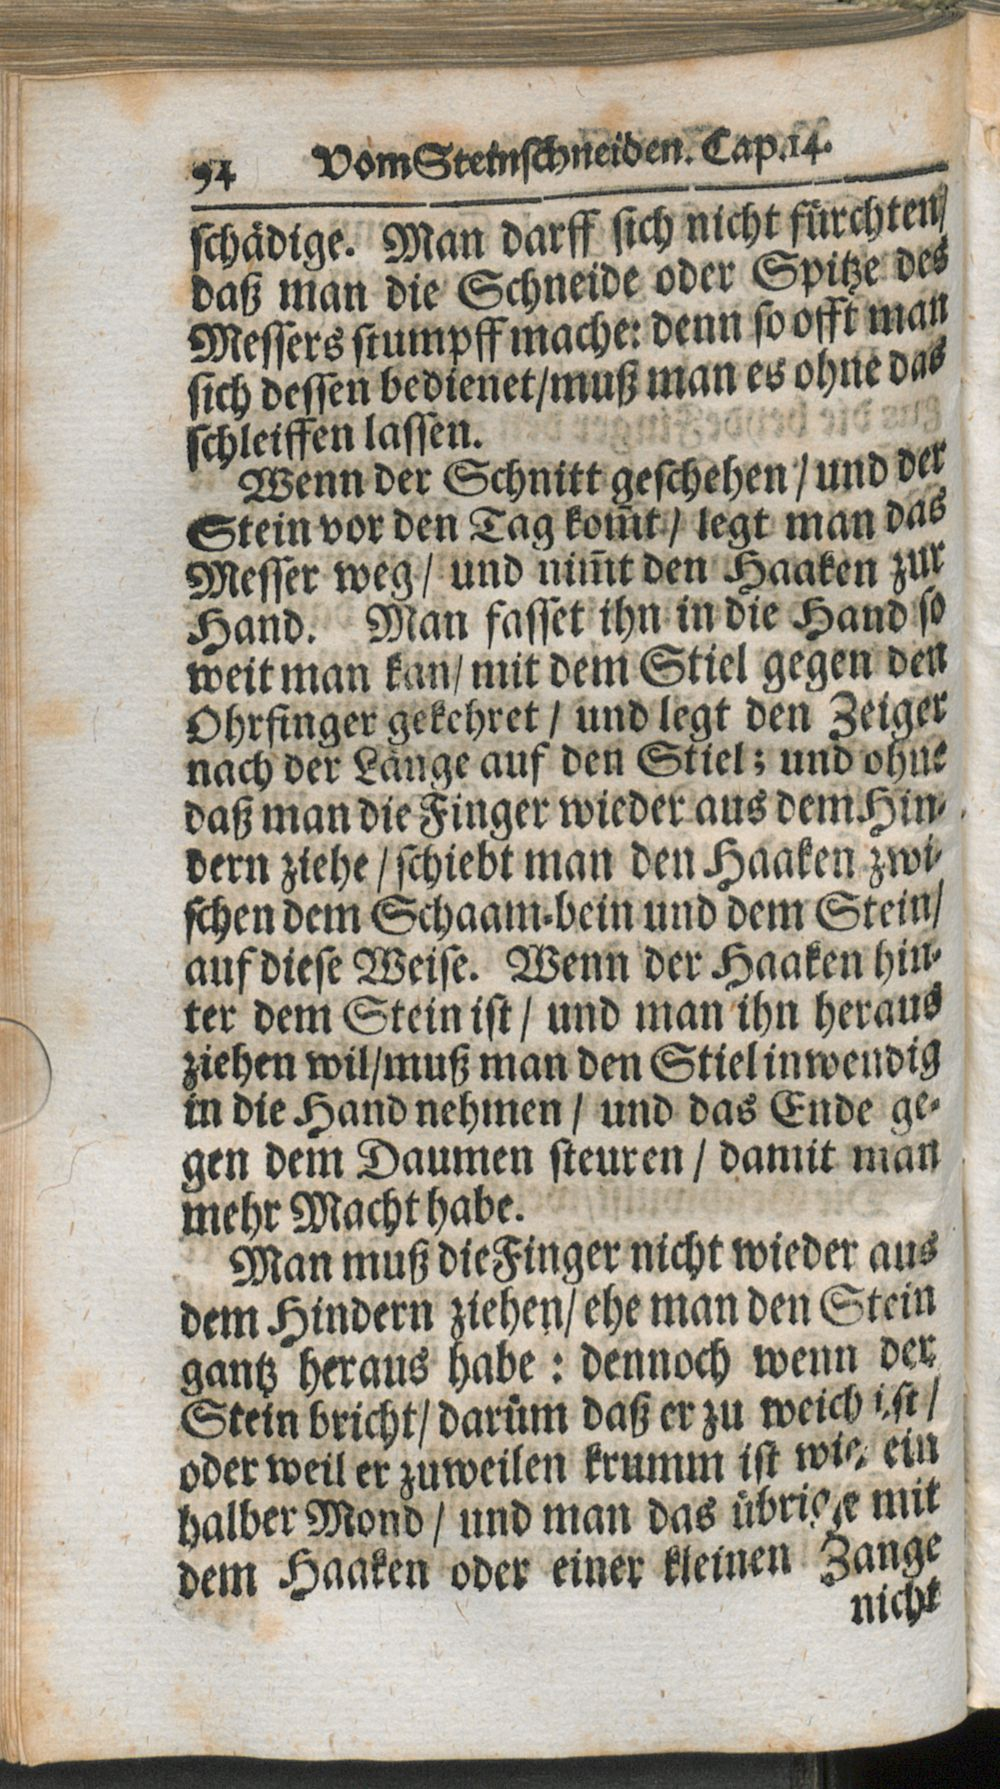 94 Vom Steinschneiden. Cap. 14.
schädige. Man darff sich nicht fürchten/
daß man die Schneide oder Spitze des
Messers stumpff mache: denn so offt man
sich dessen bedienet/muß man es ohne das
schleiffen lassen.
Wenn der Schnitt geschehen/ und der
Stein vor den Tag kom̃t/ legt man das
Messer weg/ und nim̃t den Haaken zur
Hand. Man fasset ihn in die Hand so
weit man kan/ mit dem Stiel gegen den
Ohrfinger gekehret/ und legt den Zeiger
nach der Länge auf den Stiel; und ohne
daß man die Finger wieder aus dem Hin-
dern ziehe/ schiebt man den Haaken zwi-
schen dem Schaam-bein und dem Stein/
auf diese Weise. Wenn der Haaken hin-
ter dem Stein ist/ und man ihn heraus
ziehen wil/muß man den Stiel inwendig
in die Hand nehmen/ und das Ende ge-
gen dem Daumen steuren/ damit man
mehr Macht habe.
Man muß die Finger nicht wieder aus
dem Hindern ziehen/ ehe man den Stein
gantz heraus habe: dennoch wenn der
Stein bricht/ darüm daß er zu weich ist/
oder weil er zuweilen krumm ist wie ein
halber Mond/ und man das übrige mit
dem Haaken oder einer kleinen Zange
nicht